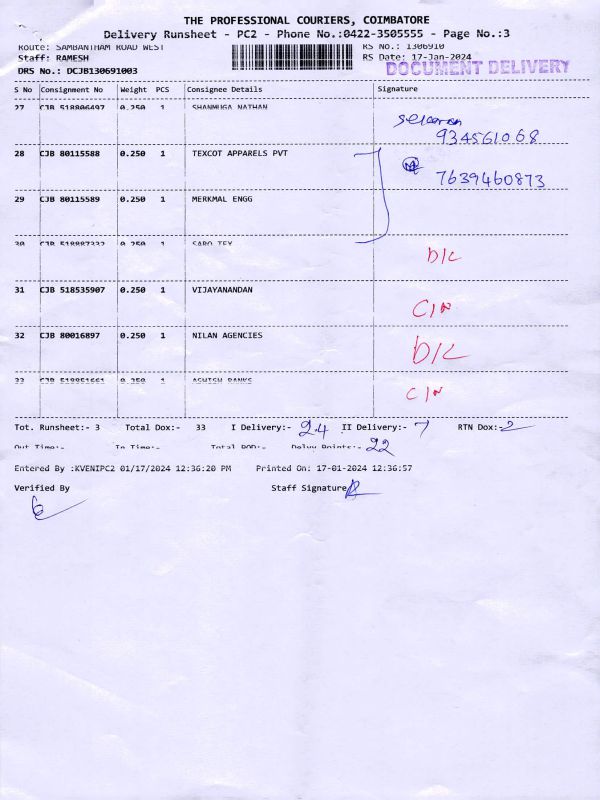 THE PROFESSIONAL COURIERS, COIMBATORE
Delivery Runsheet - PC2 - Phone No.:0422-3505555 - Page No.:3
Route: SAMBANTHAM ROAD WEST RS No.: 1306910
Staff: RAMESH RS Date: 17-Jan-2024
DOCUMENT DELIVERY
DRS No.: DCJB130691003
S No Consignment No Weight PCS Consignee Details Signature
27 CJB 518806497 0.250 1 SHANMUGA NATHAN
934561068
28 CJB 80115588 0.250 1 TEXCOT APPARELS PVT
7639460873
29 CJB 80115589 0.250 1 MERKMAL ENGG
30 CJB 518887332 0.250 1 SARO TEX
D/L
31 CJB 518535907 0.250 1 VIJAYANANDAN
C/N
32 CJB 80016897 0.250 1 NILAN AGENCIES
D/L
33 0.250 1
C/N
Tot. Runsheet:- 3 Total Dox:- 33 I Delivery:- 24 II Delivery:- 7 RTN Dox:- 2
Out Time:- In Time:- Total POD:- Delvy Points:- 22
Entered By :KVENIPC2 01/17/2024 12:36:20 PM Printed On: 17-01-2024 12:36:57
Verified By Staff Signature